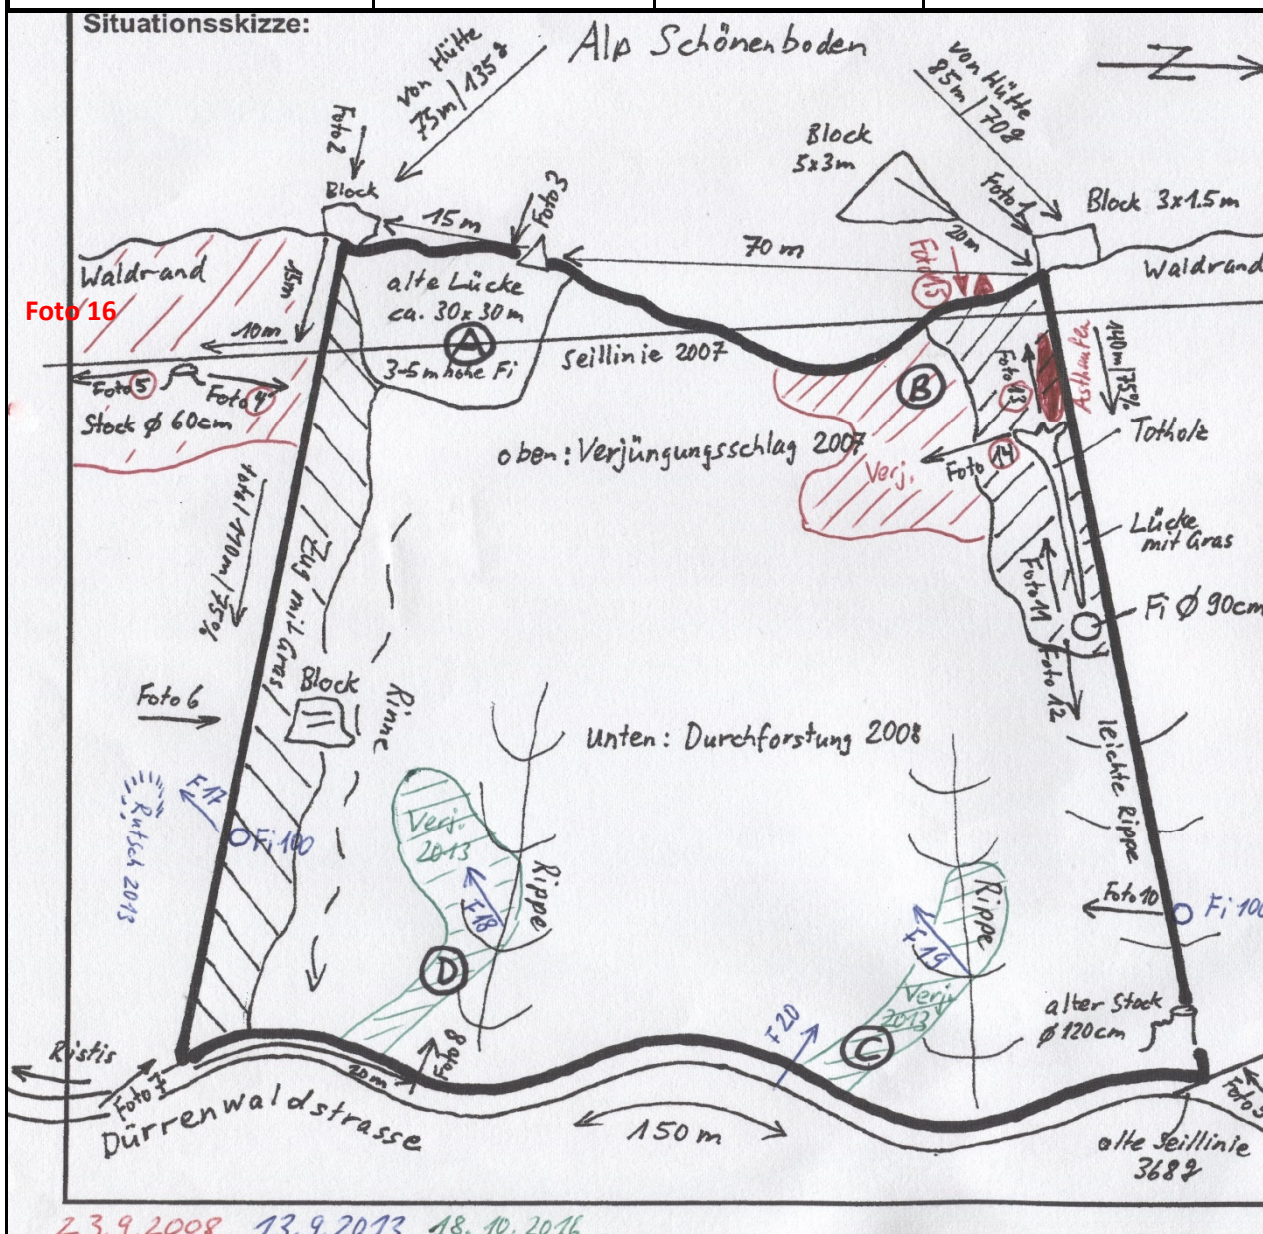 Situationsskizze:
Alp Schönenboden
von Hütte
75m/135g
von Hütte
85m/70g
N
Foto 2
Block
15m
Foto 3
Block
5x3m
Foto 1
20m
Block 3x1.5m
70 m
Waldrand
Waldrand
15m
Foto 16
10m
alte Lücke
ca. 30x30m
A
3-5m hohe Fi
Seillinie 2007
Foto 15
B
Foto 13
Asthaufen
140m/75%
Foto 5
Foto 4
Stock ø 60cm
oben: Verjüngungsschlag 2007
Verj.
Foto 14
Totholz
Lücke
mit Gras
total 110m/75%
Zug mit Gras
Foto 11
Fi Ø 90cm
Foto 12
Foto 6
Block
Rinne
Unten: Durchforstung 2008
leichte Rippe
F.17
Fi 100
Rutsch 2013
Verj.
2013
F.18
Rippe
F.19
Rippe
Foto 10
Fi 100
D
Verj.
2013
C
F.20
alter Stock
ø 120cm
Ristis
Foto 7
20m
Foto 8
Dürrenwaldstrasse
150m
alte Seillinie
368g
23.9.2008 13.9.2013 18.10.2016